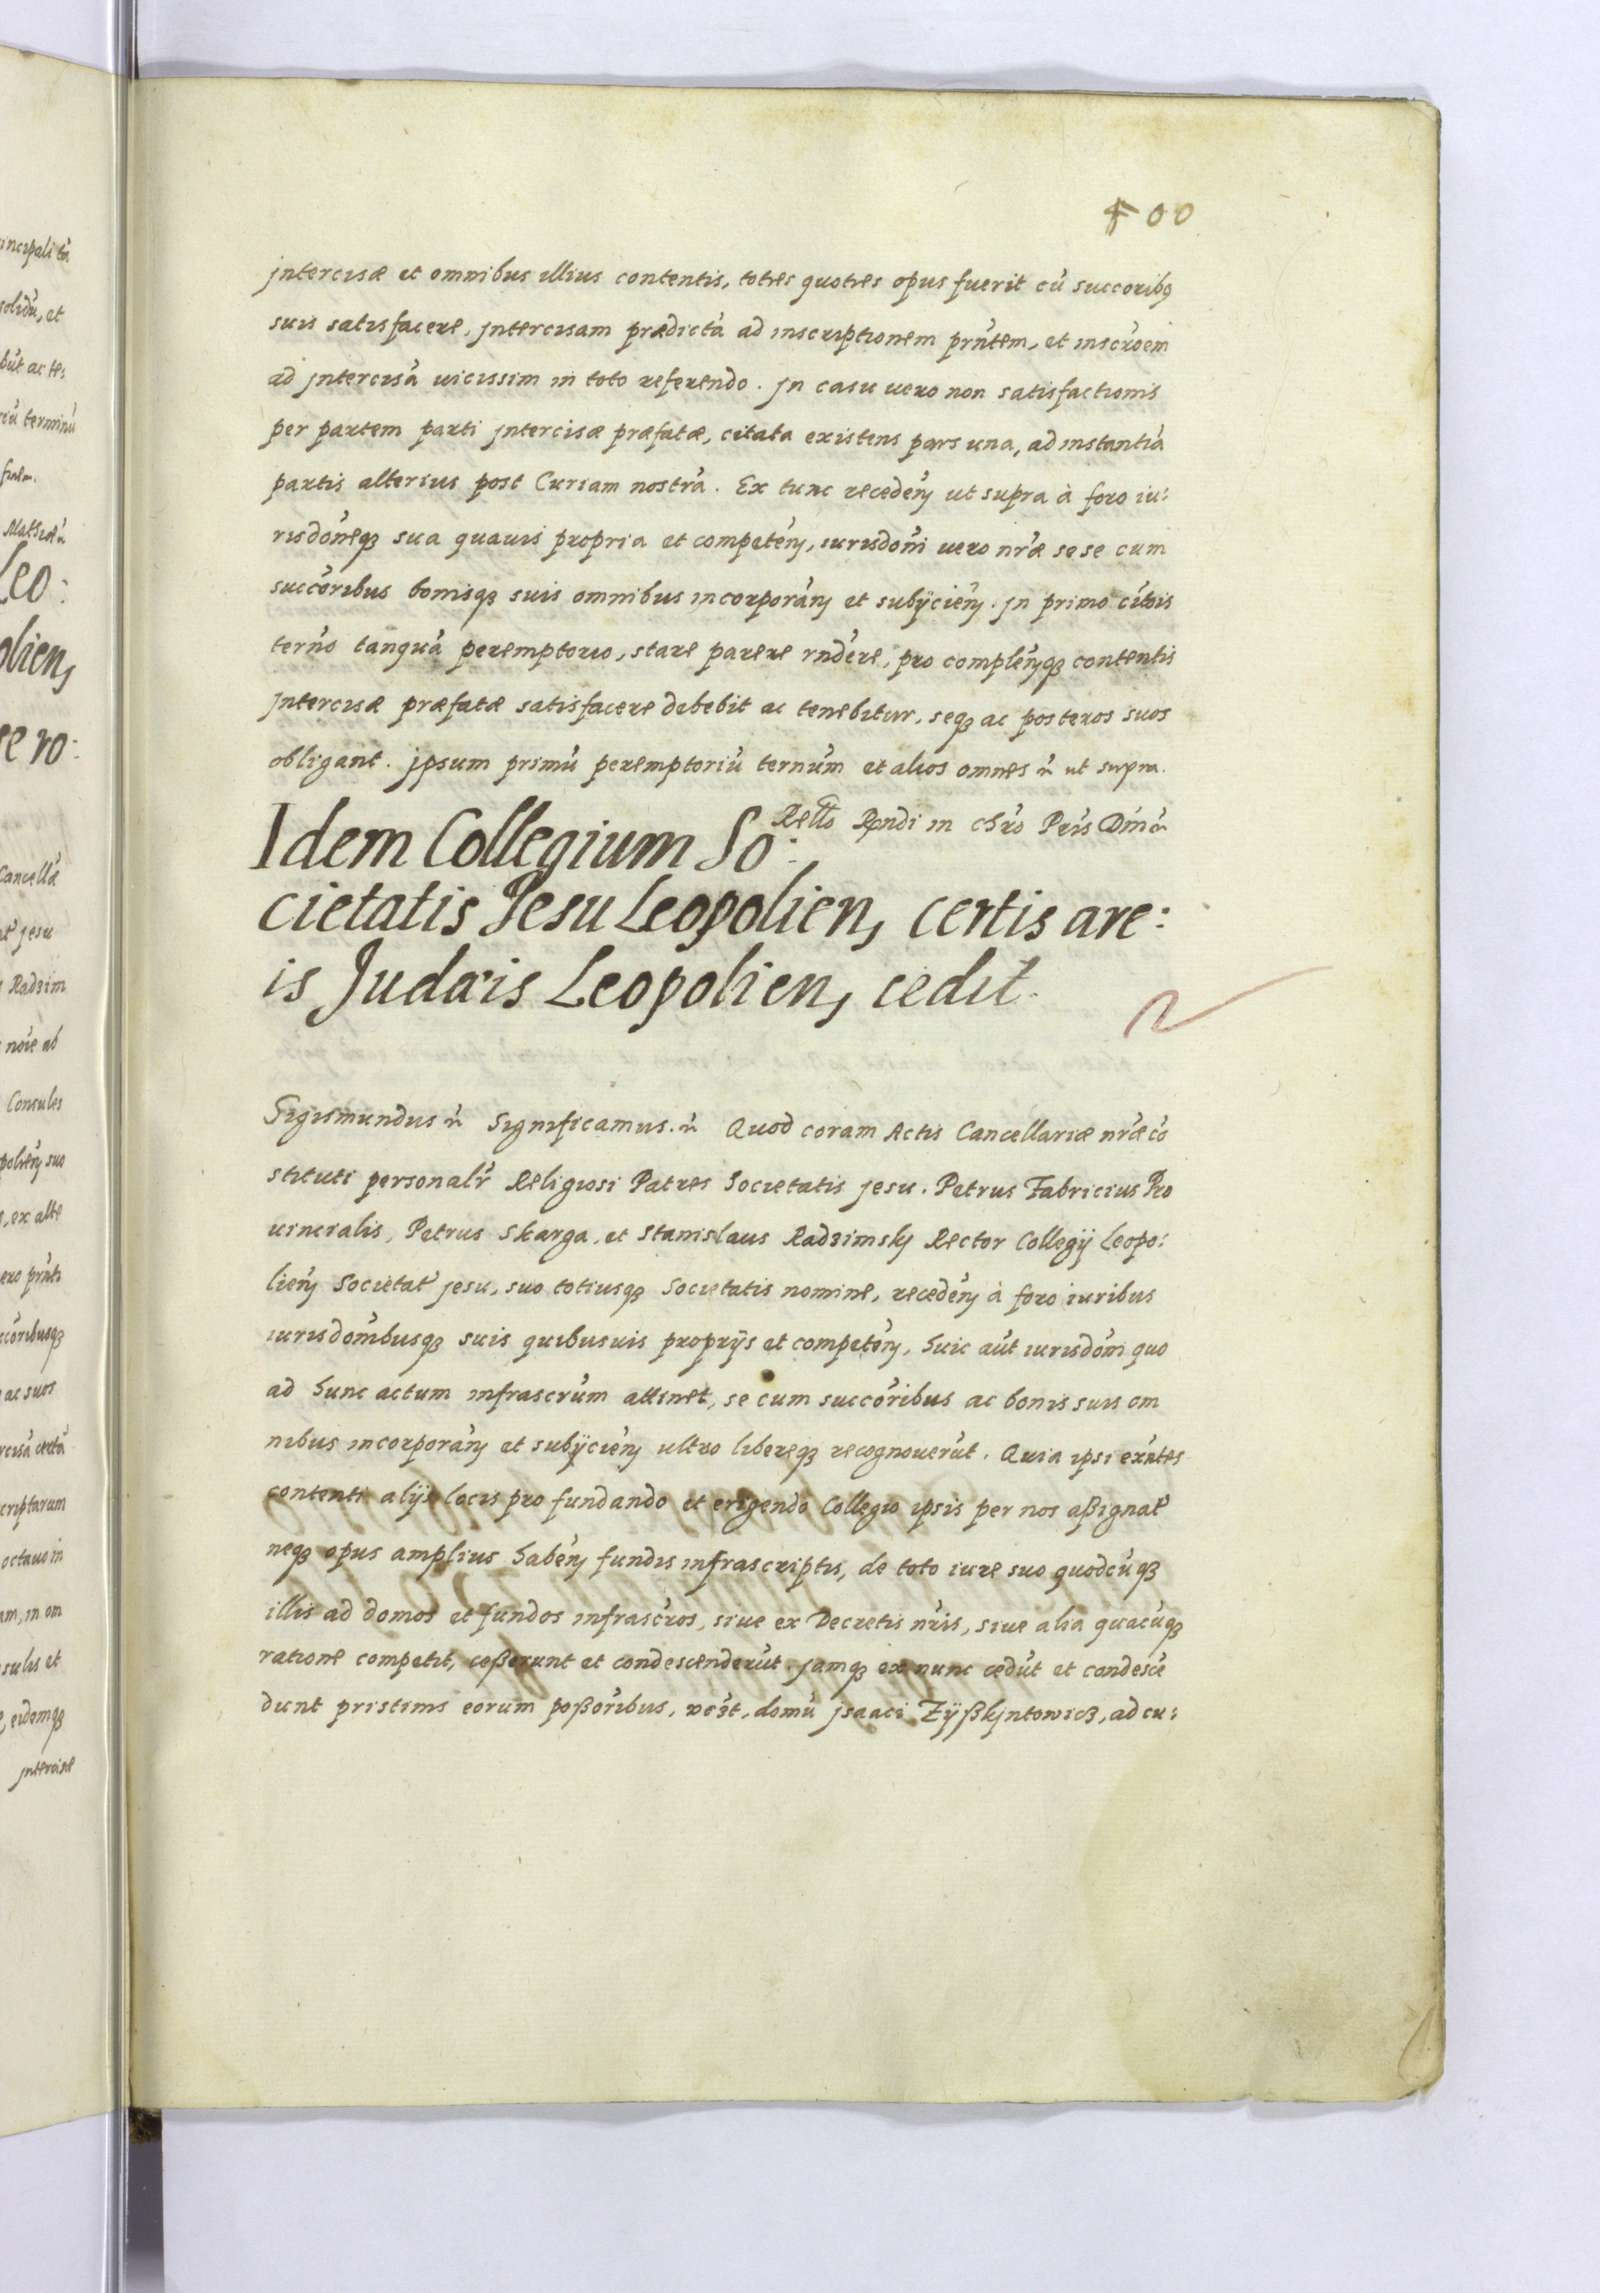 400
jntercisæ et omnibus illius contentis, toties quoties opus fuerit cū succoribq
suis satisfacere, jntercisam prædictā ad inscriptionem prn̄tem, et inscr̄oem
ad jntercisā uicissim in toto referendo. jn casu uero non satisfactionis
per partem parti jntercisæ præfatæ, citata existens pars una, ad instantiā
partis alterius post Curiam nostrā. Ex tunc recedeñ ut supra à foro iu:
risdōneq3 sua quauis propria et competeñ, iurisdōni uero nr̄æ sese cum
succōribus bonisq3 suis omnibus incorporañ et subÿcieñ. jn primo cit̄ois
tern̄o tanquā peremptorio, stare parere rn̄dere, pro compleñq3 contentis
jntercisæ præfatæ satisfacere debebit ac tenebitur, seq3 ac posteros suos
obligant. jpsum primū peremptoriū tern̄um et alios omnes ut supra.
Rell̄o Rn̄di in chr̄o Pr̄is Dn̄i
Idem Collegium So:
cietatis Jesu Leopolien, certis are:
is Judæis Leopolien, cedit.
Sigismundus Significamus. Quod coram Actis Cancellariæ nr̄æ cō
stituti personalr̄ Religiosi Patres Societatis jesu. Petrus Fabricius Pro
uincialis, Petrus Skarga, et Stanislaus Radzimsky Rector Collegÿ Leopo:
lieñ Societat̄ jesu, suo totiusq3 Societatis nomine, recedeñ à foro iuribus
iurisdōnibusq3 suis quibusuis proprÿs et competeñ, huic aūt iurisdōni quo
ad hunc actum infrascr̄um attinet, se cum succōribus ac bonis suis om
nibus incorporañ et subÿcieñ ultro libereq3 recognouerūt. Quia ipsi exn̄tes
contenti alÿs locis pro fundando et erigendo Collegio ipsis per nos aßignat̄
neq3 opus amplius habeñ fundis infrascriptis, de toto iure suo quodcūq3
illis ad domos et fundos infrascr̄os, siue ex Decretis nr̄is, siue alia quacūq3
ratione competit, ceßerunt et condescenderūt. jamq3 ex nunc cedūt et condescē
dunt pristinis eorum poßōribus, vc3t, domū jsaaci Zÿßkyntowicß, ad cu: